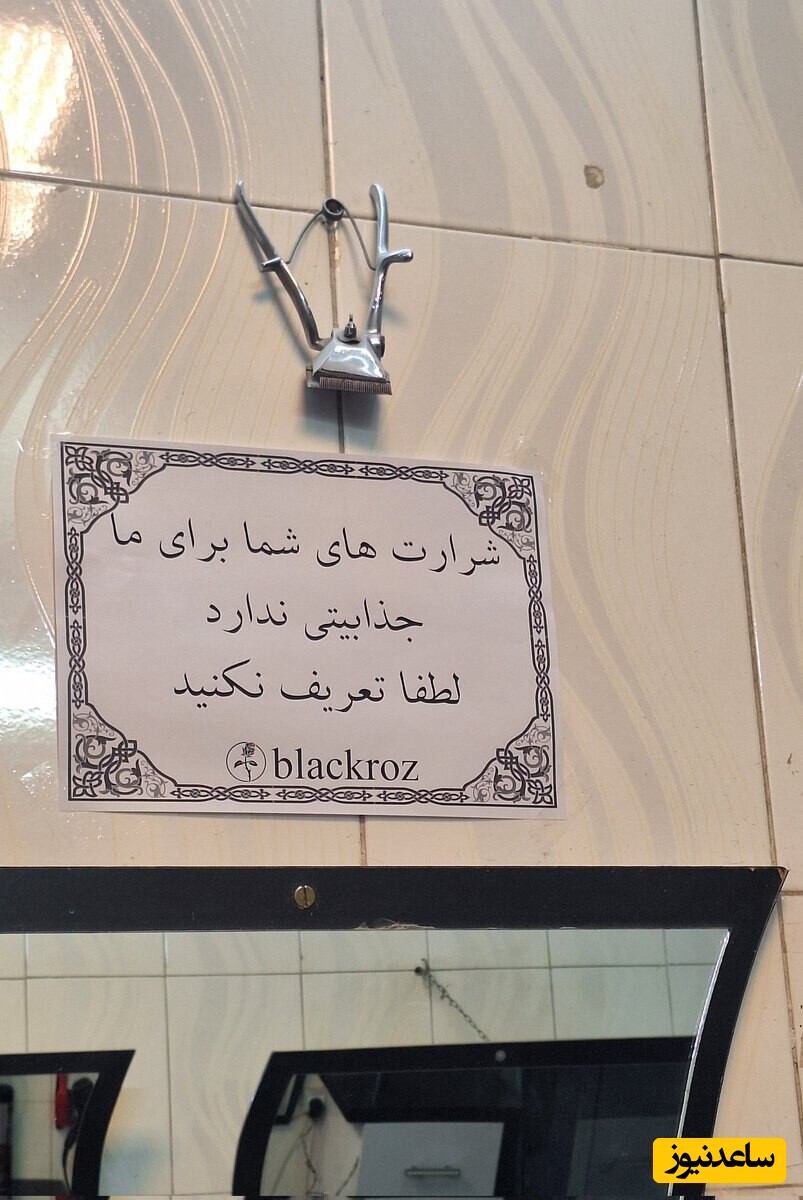 شرارت های شما برای ما
جذابیتی ندارد
لطفا تعریف نکنید
blackroz
ساعدنیوز